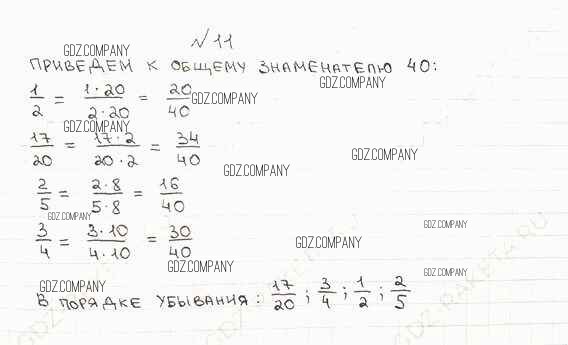 №11
GDZ.COMPANY
ПРИВЕДЕМ К ОБЩЕМУ ЗНАМЕНАТЕЛЮ 40:
GDZ.COMPANY
1/2 = 1·20/2·20 = 20/40
GDZ.COMPANY
GDZ.COMPANY
17/20 = 17·2/20·2 = 34/40
GDZ.COMPANY
GDZ.COMPANY
2/5 = 2·8/5·8 = 16/40
GDZ.COMPANY
GDZ.COMPANY
3/4 = 3·10/4·10 = 30/40
GDZ.COMPANY
GDZ.COMPANY
GDZ.COMPANY
GDZ.COMPANY
В ПОРЯДКЕ УБЫВАНИЯ: 17/20; 3/4; 1/2; 2/5